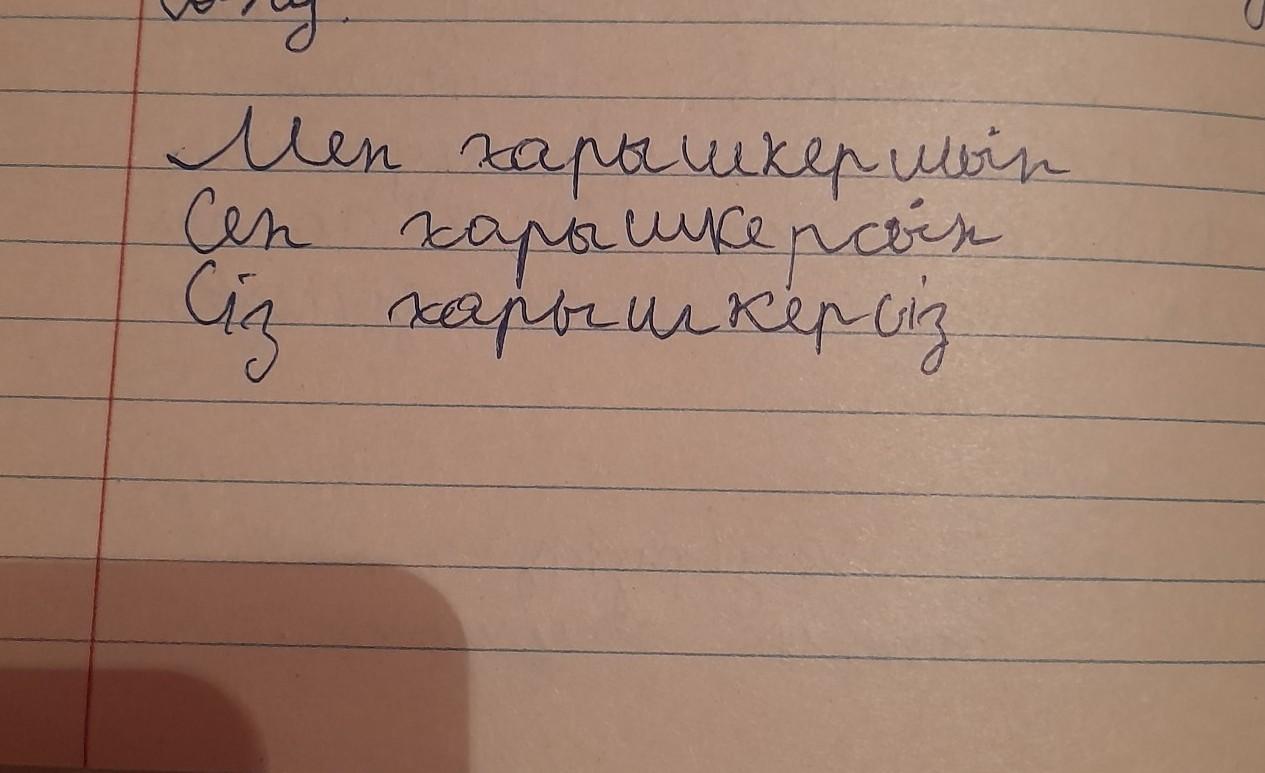 Мен харышкермін
Сен харышкерсін
Сіз харышкерсіз